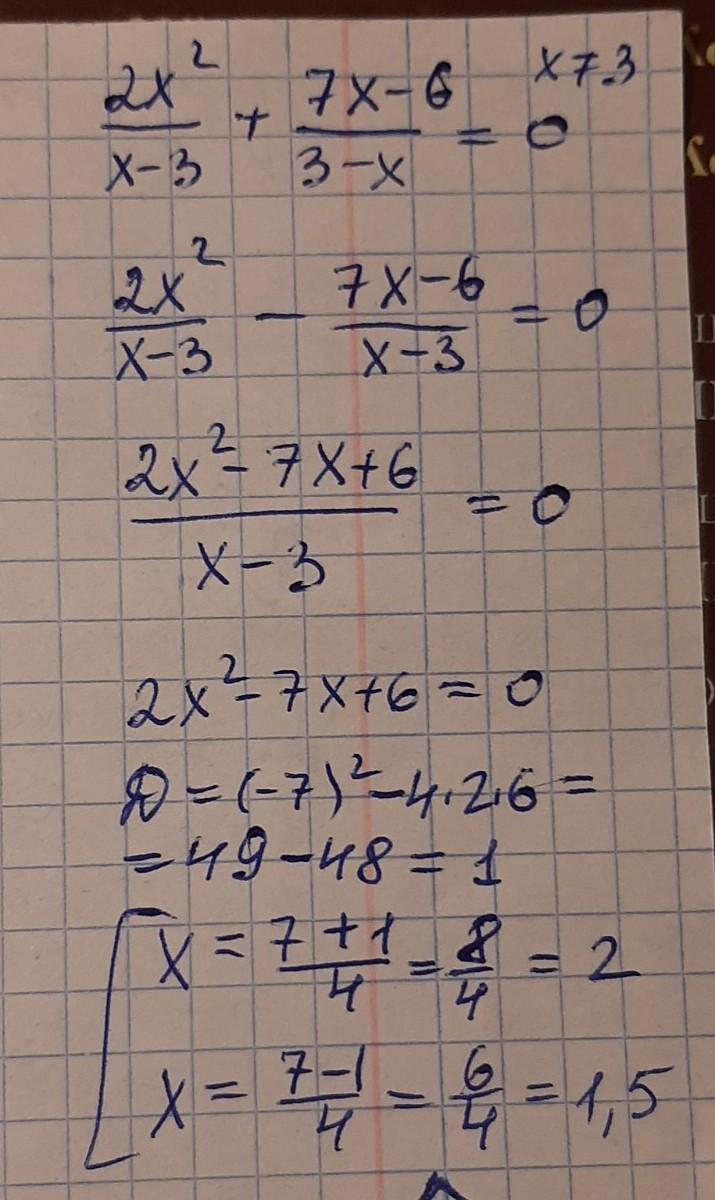 2x²/x-3 + 7x-6/3-x = 0 x≠3
2x²/x-3 - 7x-6/x-3 = 0
2x²-7x+6/x-3 = 0
2x²-7x+6 = 0
D = (-7)²-4·2·6 =
= 49-48 = 1
x = 7+1/4 = 8/4 = 2
x = 7-1/4 = 6/4 = 1,5